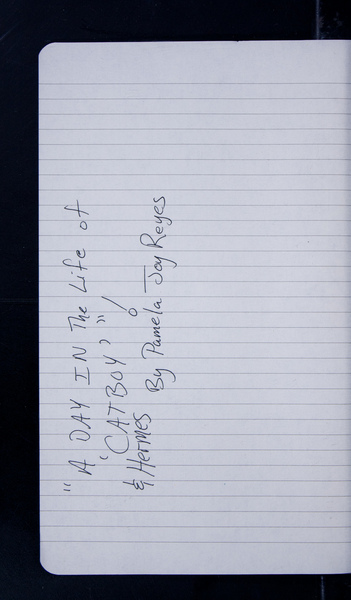 "A DAY IN The Life of
'CATBOY'"!
& Hermes By Pamela Joy Reyes